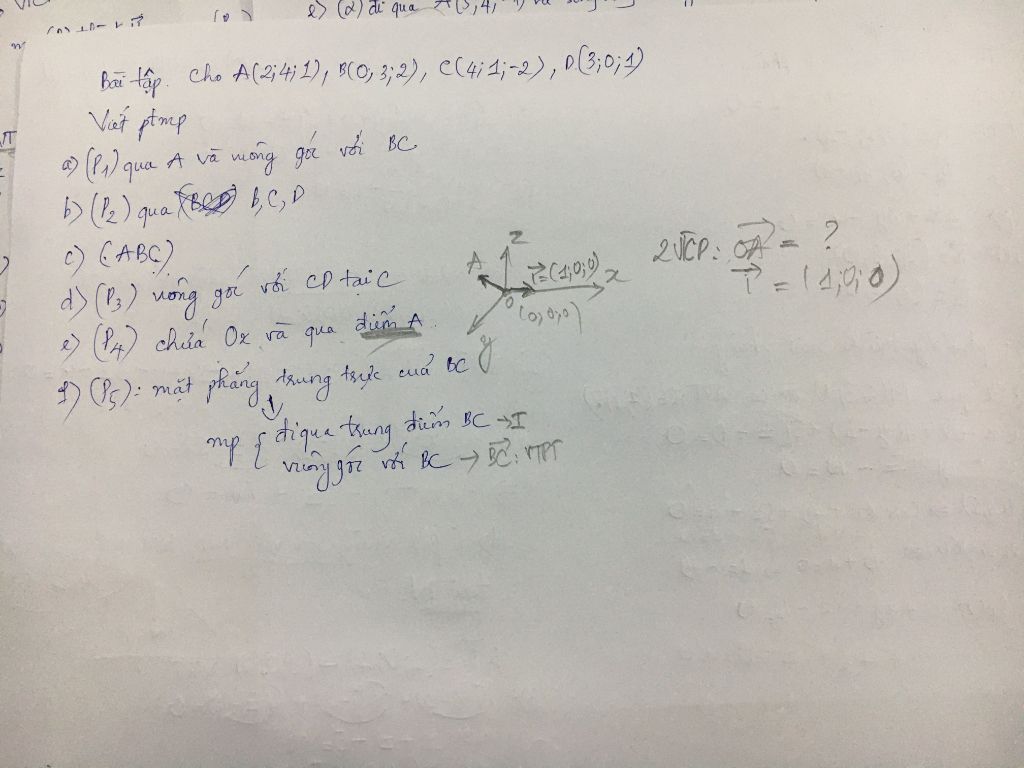 e) (α) đi qua A(3,4,
Bài tập. Cho A(2;4;1), B(0;3;2), C(4;1;-2), D(3;0;1)
Viết ptmp
a) (P₁) qua A và vuông góc với BC
b) (P₂) qua B, C, D
c) (ABC)
d) (P₃) vuông góc với CD tại C
e) (P₄) chứa Ox và qua điểm A.
f) (P₅): mặt phẳng trung trực của BC
↓
mp { đi qua trung điểm BC → I
vuông góc với BC → BC: VTPT
z
A i = (1;0;0) x
O
(0;0;0)
y
2 VTCP: OA = ?
i = (1;0;0)